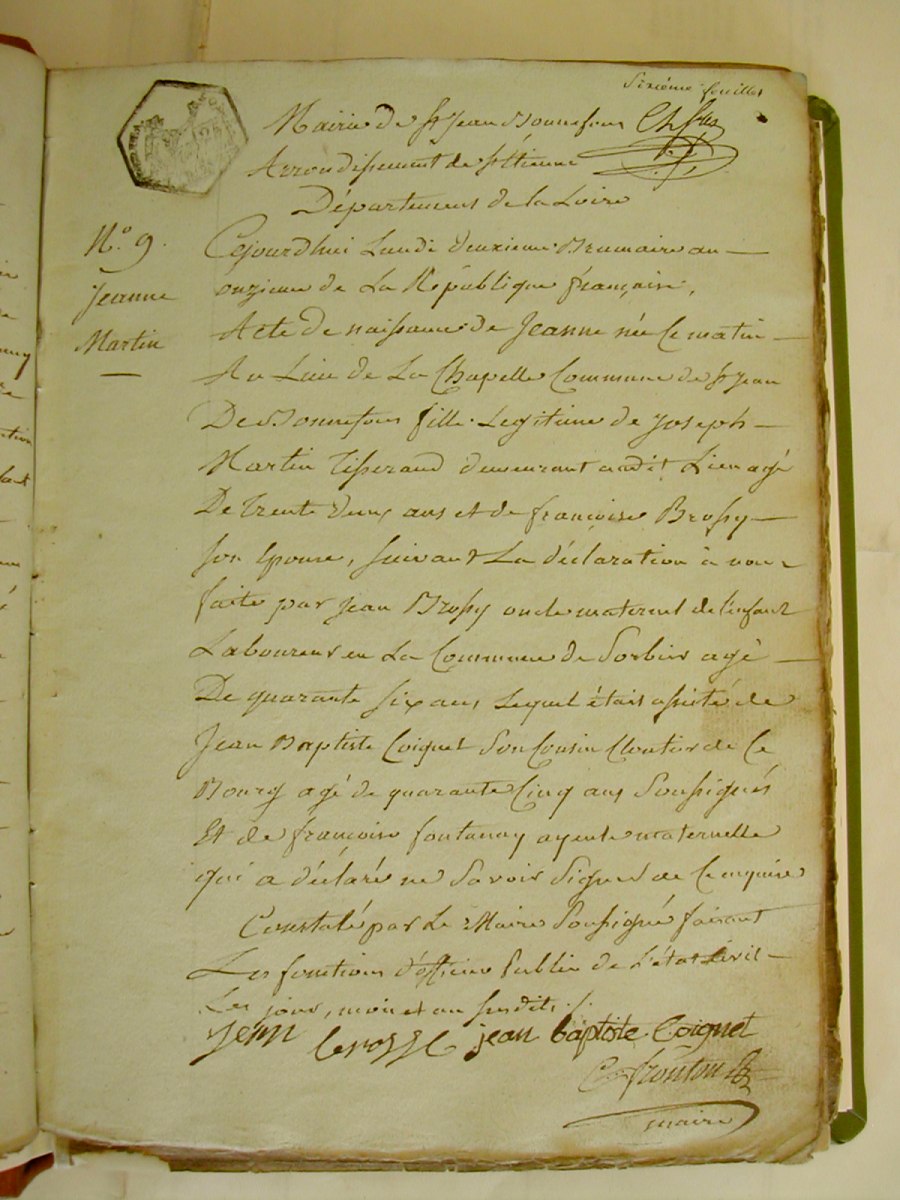 Sixième feuillet
Mairie de St Jean Bonnefons
Arrondissement de St Etienne
Département de la Loire
N.º 9.
Jeanne
Martin
Cejourdhui Lundi deuxieme Brumaire an
onzieme de La République française,
Acte de naissance de Jeanne née Ce matin
Au Lieu de La Chapelle Commune de St Jean
De Bonnefons fille Legitime de Joseph
Martin Tisserand demeurant audit Lieu agé
De Trente deux ans et de françoise Brossy
son Epouse, suivant La déclaration à nous
faite par Jean Brossy oncle maternel de l'enfant
Laboureur en La Commune de Sorbier agé
De quarante six ans, Lequel était assisté de
Jean Baptiste Coignet Son Cousin Cloutier de Ce
Bourg agé de quarante Cinq ans Soussignés
Et de françoise fontanay ayeule maternelle
qui a déclaré ne Savoir Signer de Ce enquise
Constaté par Le Maire Soussigné faisant
Les fonctions d'officier Public de L'état Civil
Les jour, mois et an susdits ./.
Jean brossy jean baptiste Coignet
fronton
maire